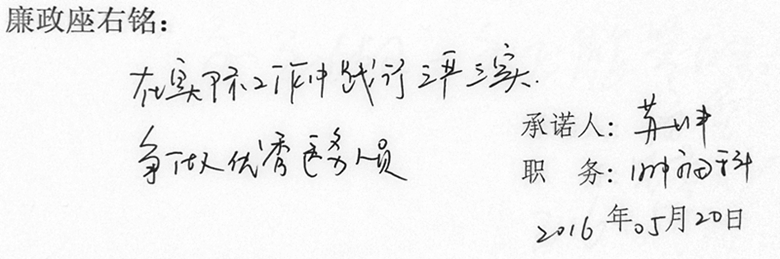 廉政座右铭：
在实际工作中践行三严三实.
争做优秀医务人员
承诺人：苏
职 务：呼吸内科
2016年05月20日